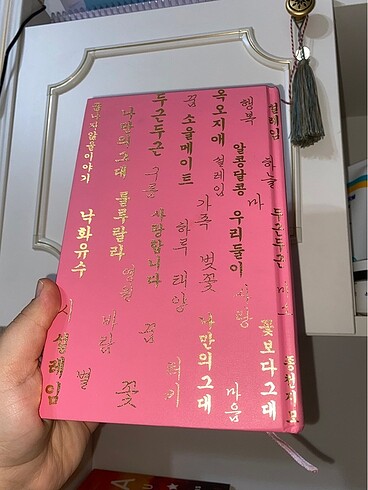 끝나지않을이야기
낙화유수
나만의그대
룰루랄라
영원
바람
별
꽃
설레임
두근두근
구름
사랑합니다
꿈
꿈
소울메이트
하루
태양
가족
벚꽃
나만의그대
옥오지애
설레임
알콩달콩
우리둘이
사랑
마음
행복
하늘
두근두근
꽃보다그대
설레임